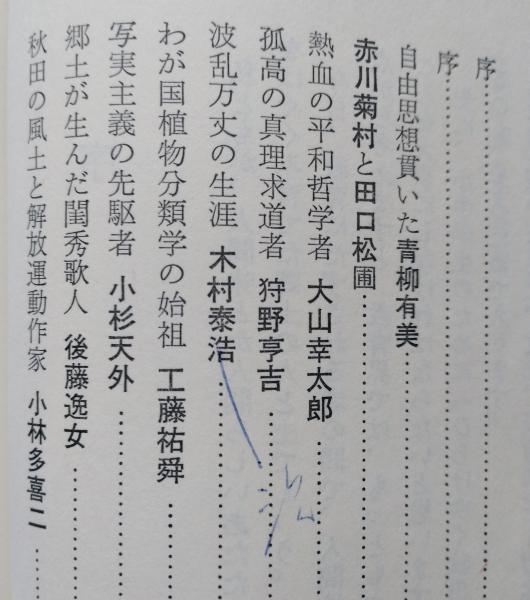 序……………
序……………
自由思想貫いた青柳有美……………
赤川菊村と田口松圃……………
熱血の平和哲学者 大山幸太郎……………
孤高の真理求道者 狩野亨吉……………
波乱万丈の生涯 木村泰浩……………
泓
わが国植物分類学の始祖 工藤祐舜……………
写実主義の先駆者 小杉天外……………
郷土が生んだ閨秀歌人 後藤逸女……………
秋田の風土と解放運動作家 小林多喜二……………